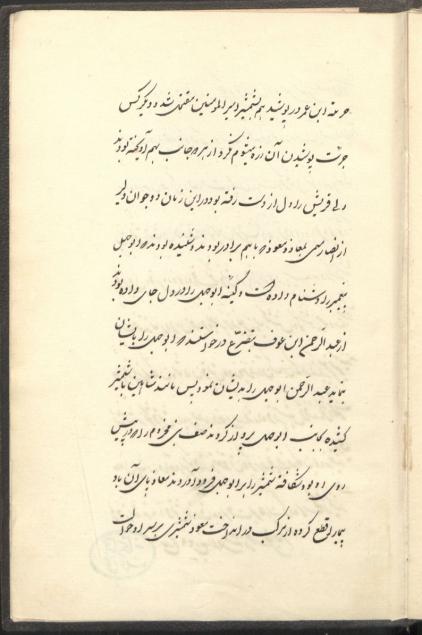 حرمله ابن عمر در پوشید هم بشمشیر امیر المومنین مقتول شد و دیگر کس
جرئت پوشیدن آن زره میشوم نکرد از هر دو جانب بهم آویخته بودند
ولی قریش را دل از دست رفته بود در این زمان دو جوان دلیر
از انصار مسمی بمعاذ و معوذ که با هم برادر بودند و شنیده بودند که ابوجهل
پیغمبر را دشنام داده است و کینه ابوجهل را در دل جای داده بودند
از عبدالرحمن ابن عوف بتضرع درخواستند که ابوجهل را بایشان
بنماید عبدالرحمن ابوجهل را بدیشان نمود پس مانند شاهین با شمشیر
کشیده بجانب ابوجهل پرواز کردند صف بنی مخزوم را که در پیش
روی او بود شکافته شمشیر را بر ابوجهل فرود آوردند معاذ پای آن
را قطع کرده از مرکب در انداخت معوذ شمشیری بر سر او